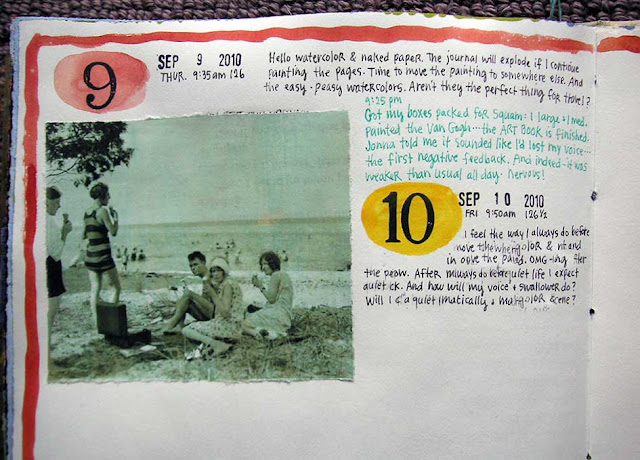 9
SEP 9 2010
THUR. 9:35am 126
Hello watercolor & naked paper. The journal will explode if I continue
painting the pages. Time to move the painting to somewhere else. And
the easy-peasy watercolors. Aren't they the perfect thing for travel?
9:25 pm
Got my boxes packed for Squam: 1 large & 1 med.
Painted the Van Gogh... the ART BOOK is finished.
Jonna told me it sounded like I'd lost my voice...
the first negative feedback. And indeed - it was
weaker than usual all day. Nervous!
10
SEP 10 2010
FRI 9:50am 126½
I feel the way I always do before
OMG-ing for
the After do before quiet life I expect
quiet And how will my voice & swallower do?
Will I a quiet &